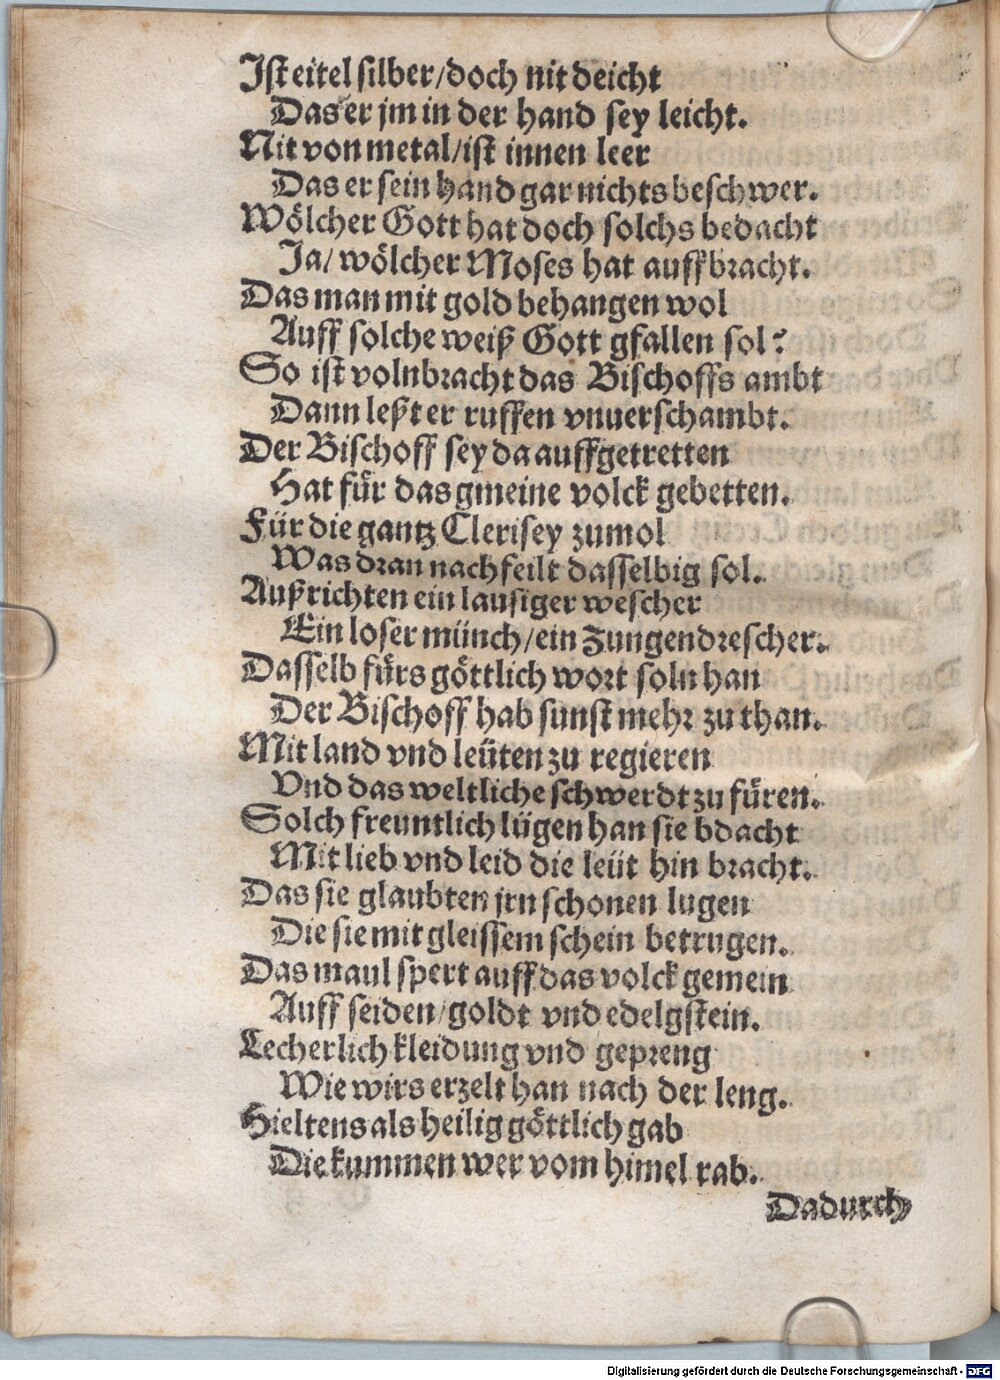 Ist eitel silber/doch nit deicht
Das er jm in der hand sey leicht.
Nit von metal/ist innen leer
Das er sein hand gar nichts beschwer.
Wölcher Gott hat doch solchs bedacht
Ja/ wölcher Moses hat auffbracht.
Das man mit gold behangen wol
Auff solche weiß Gott gfallen sol?
So ist volnbracht das Bischoffs ambt
Dann leßt er ruffen vnuerschambt.
Der Bischoff sey da auffgetretten
Hat für das gmeine volck gebetten.
Für die gantz Clerisey zumol
Was dran nachfeilt dasselbig sol.
Außrichten ein lausiger wescher
Ein loser münch/ein Zungendrescher.
Dasselb fürs göttlich wort soln han
Der Bischoff hab sunst mehr zu than.
Mit land vnd leüten zu regieren
Vnd das weltliche schwerdt zu füren.
Solch freuntlich lügen han sie bdacht
Mit lieb vnd leid die leüt hin bracht.
Das sie glaubten jrn schonen lugen
Die sie mit gleissem schein betrugen.
Das maul spert auff das volck gemein
Auff seiden/goldt vnd edelgstein.
Lecherlich kleidung vnd gepreng
Wie wirs erzelt han nach der leng.
Hieltens als heilig göttlich gab
Die kummen wer vom himel rab.
Dadurch
Digitalisierung gefördert durch die Deutsche Forschungsgemeinschaft - DFG